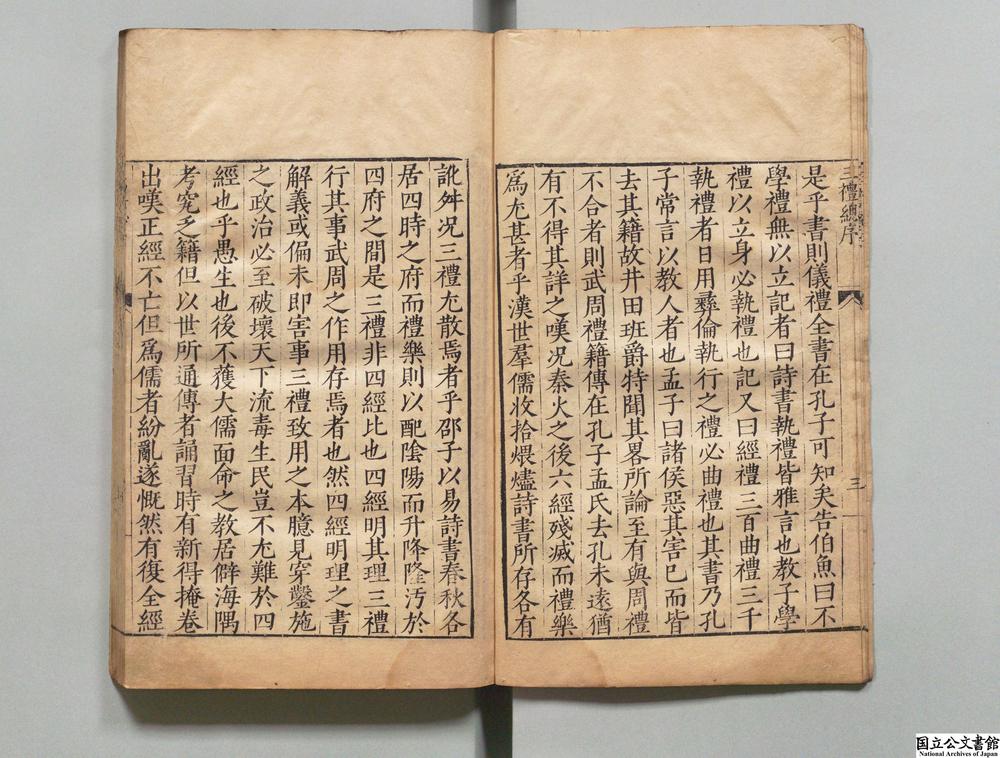 三禮總序
三
是乎書則儀禮全書在孔子可知矣告伯魚曰不
學禮無以立記者曰詩書執禮皆雅言也教子學
禮以立身必執禮也記又曰經禮三百曲禮三千
執禮者日用彝倫執行之禮必曲禮也其書乃孔
子常言以教人者也孟子曰諸侯惡其害已而皆
去其籍故井田班爵特聞其畧所論至有與周禮
不合者則武周禮籍傳在孔子孟氏去孔未遠猶
有不得其詳之嘆况秦火之後六經殘滅而禮樂
爲尤甚者乎漢世羣儒收拾煨燼詩書所存各有
訛舛况三禮尤散焉者乎邵子以易詩書春秋各
居四時之府而禮樂則以配陰陽而升降隆汚於
四府之間是三禮非四經比也四經明其理三禮
行其事武周之作用存焉者也然四經明理之書
解義或偏未即害事三禮致用之本臆見穿鑿施
之政治必至破壞天下流毒生民豈不尤難於四
經也乎愚生也後不獲大儒面命之教居僻海隅
考究乏籍但以世所通傳者誦習時有新得掩卷
出嘆正經不亡但爲儒者紛亂遂慨然有復全經
国立公文書館
National Archives of Japan